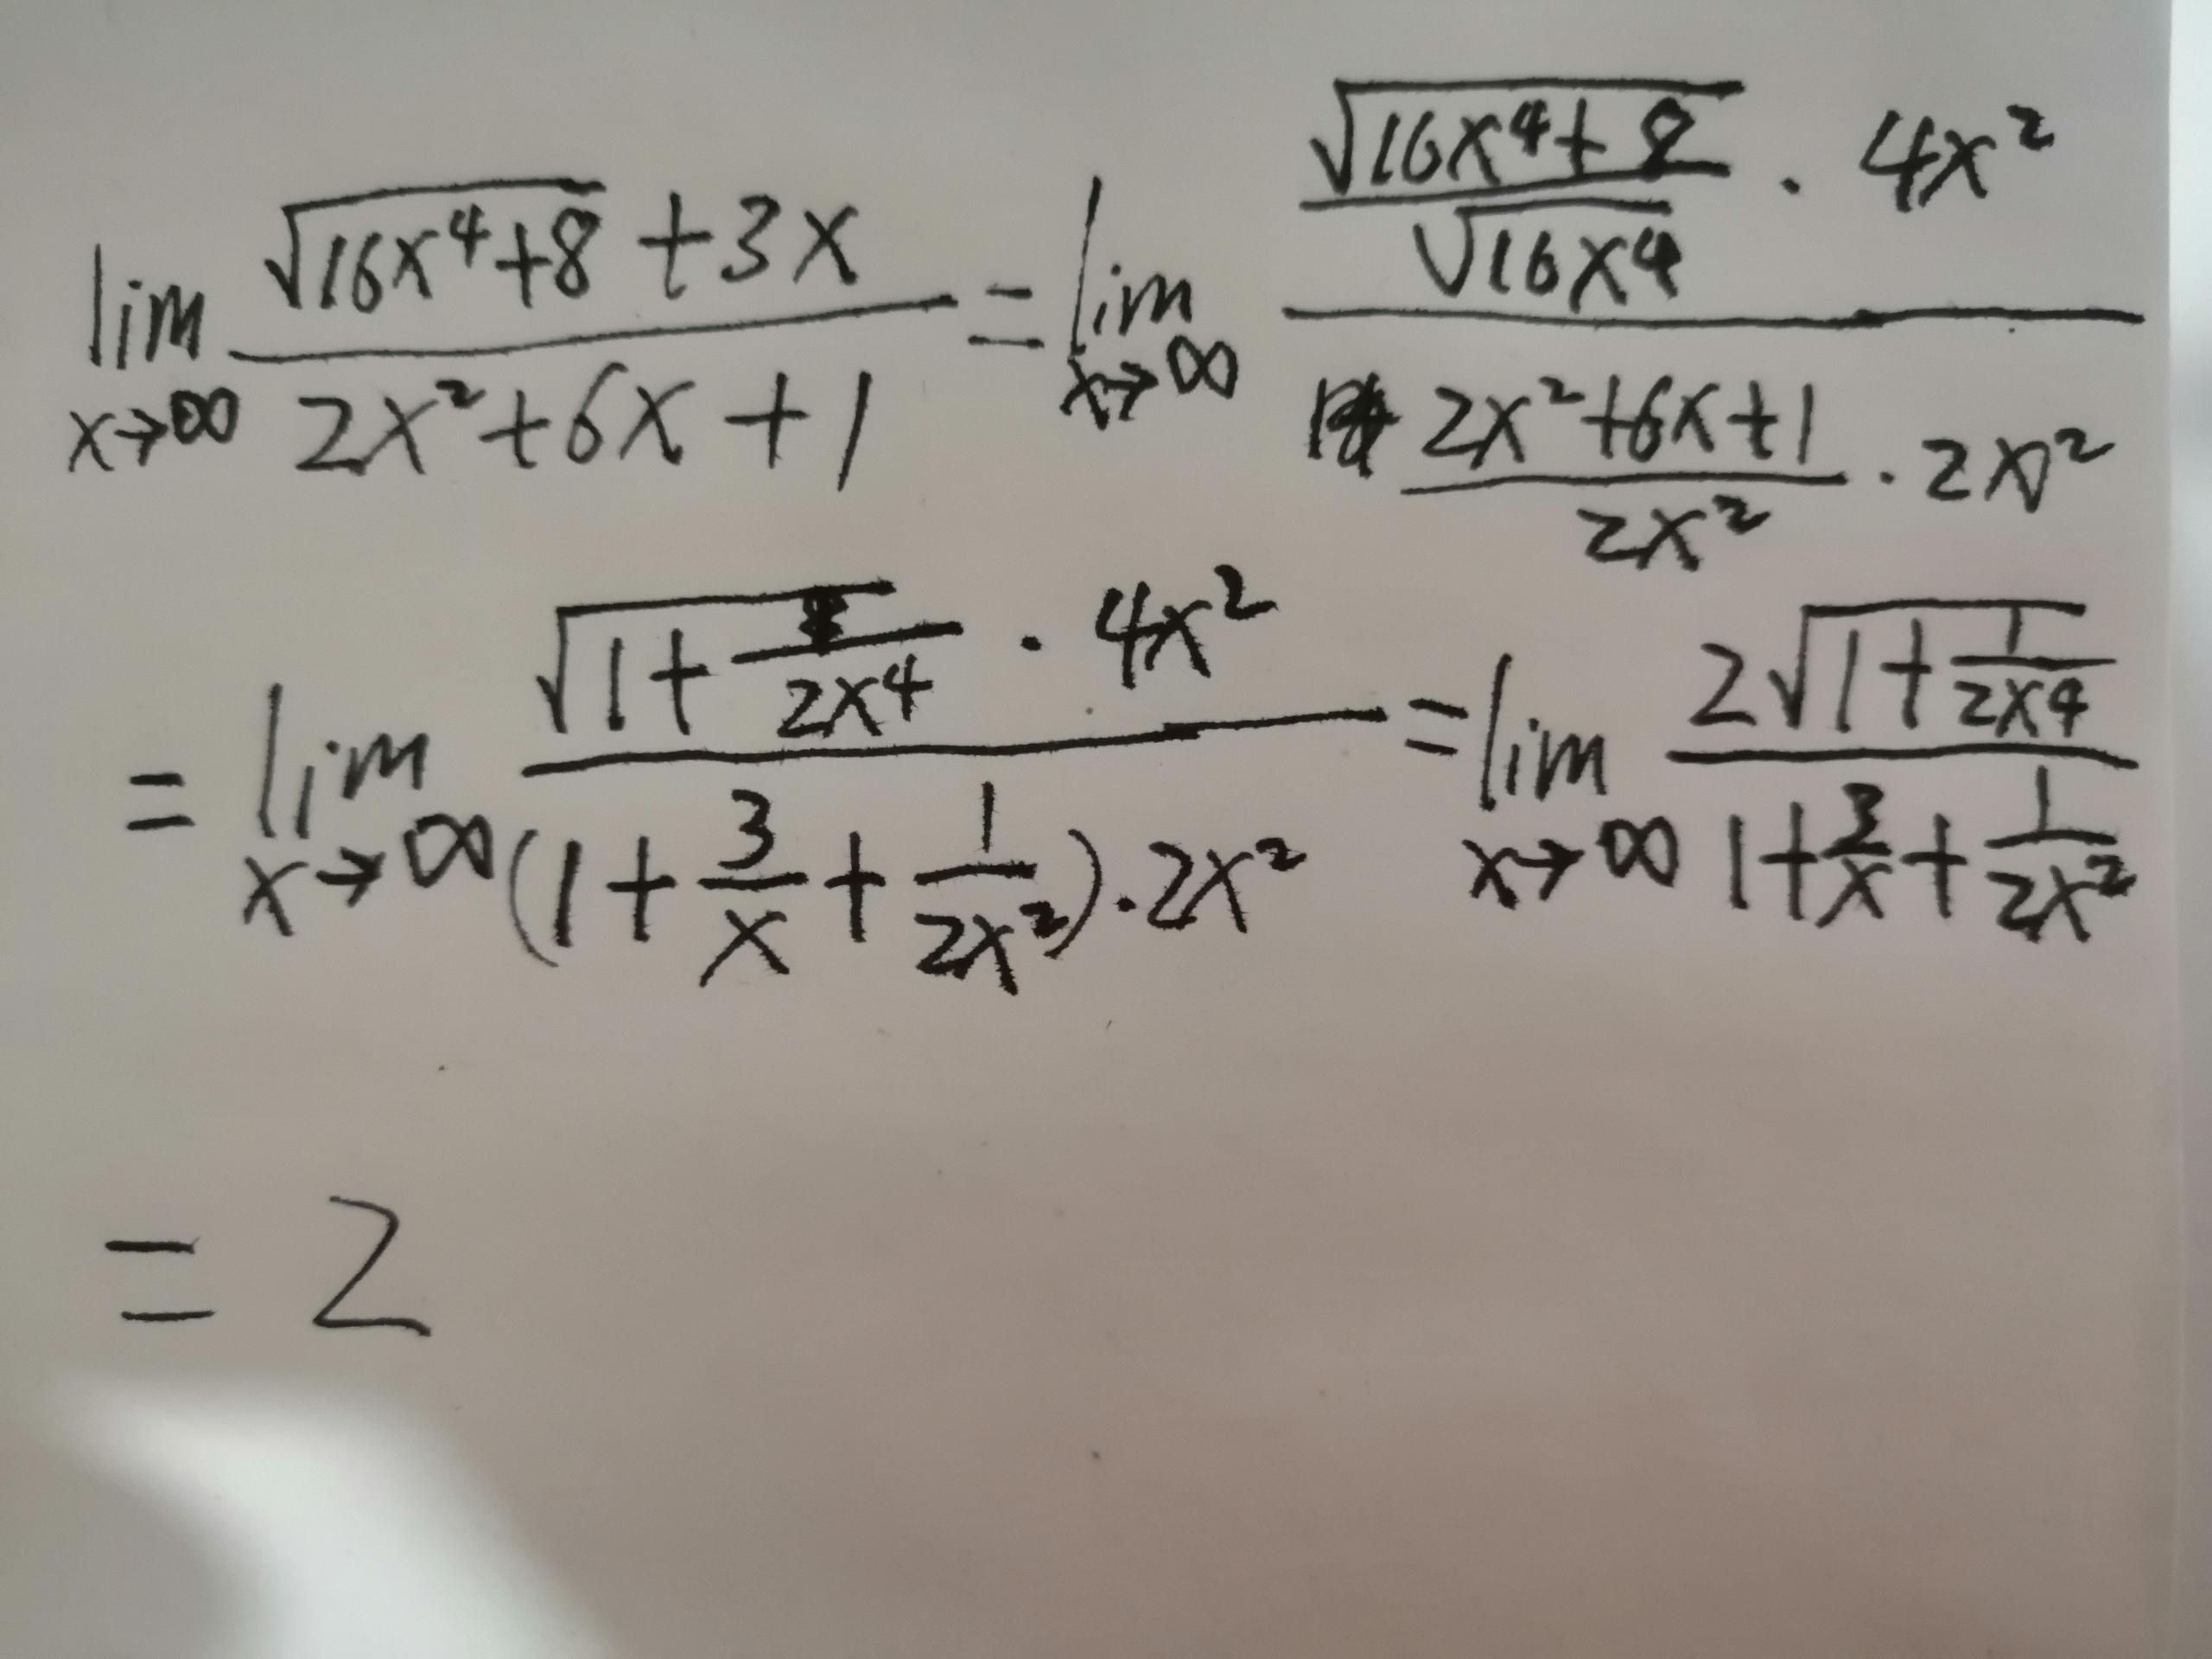 lim x→∞ (√(16x⁴+8) + 3x)/(2x²+6x+1) = lim x→∞ (√(16x⁴+8)/√(16x⁴) · 4x²)/((2x²+6x+1)/(2x²) · 2x²)
= lim x→∞ (√(1+1/(2x⁴)) · 4x²)/((1+3/x+1/(2x²))·2x²) = lim x→∞ (2√(1+1/(2x⁴)))/(1+3/x+1/(2x²))
= 2